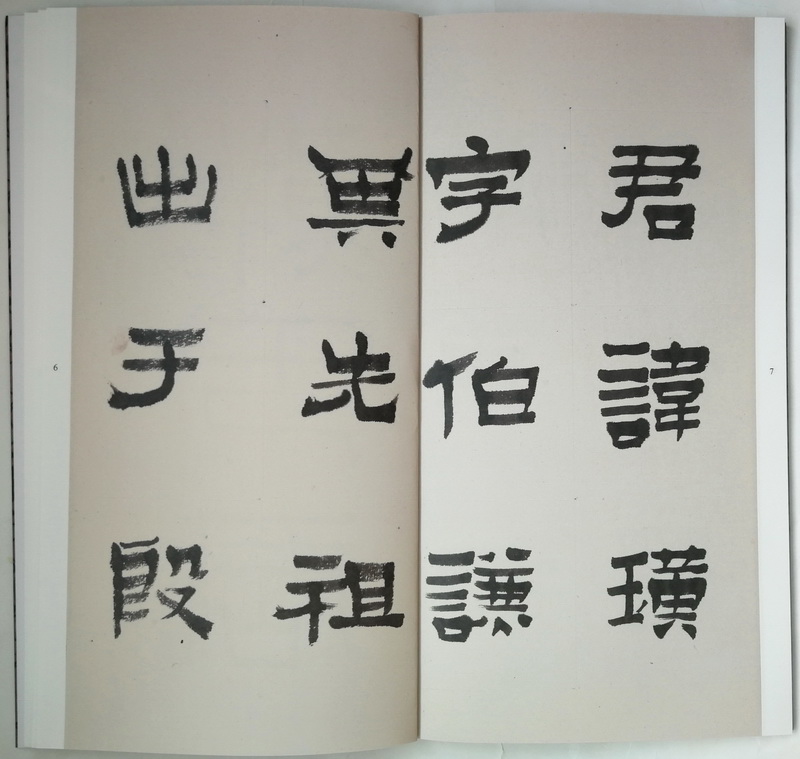 君諱璜
字伯謙
其先祖
出于殷
7
6